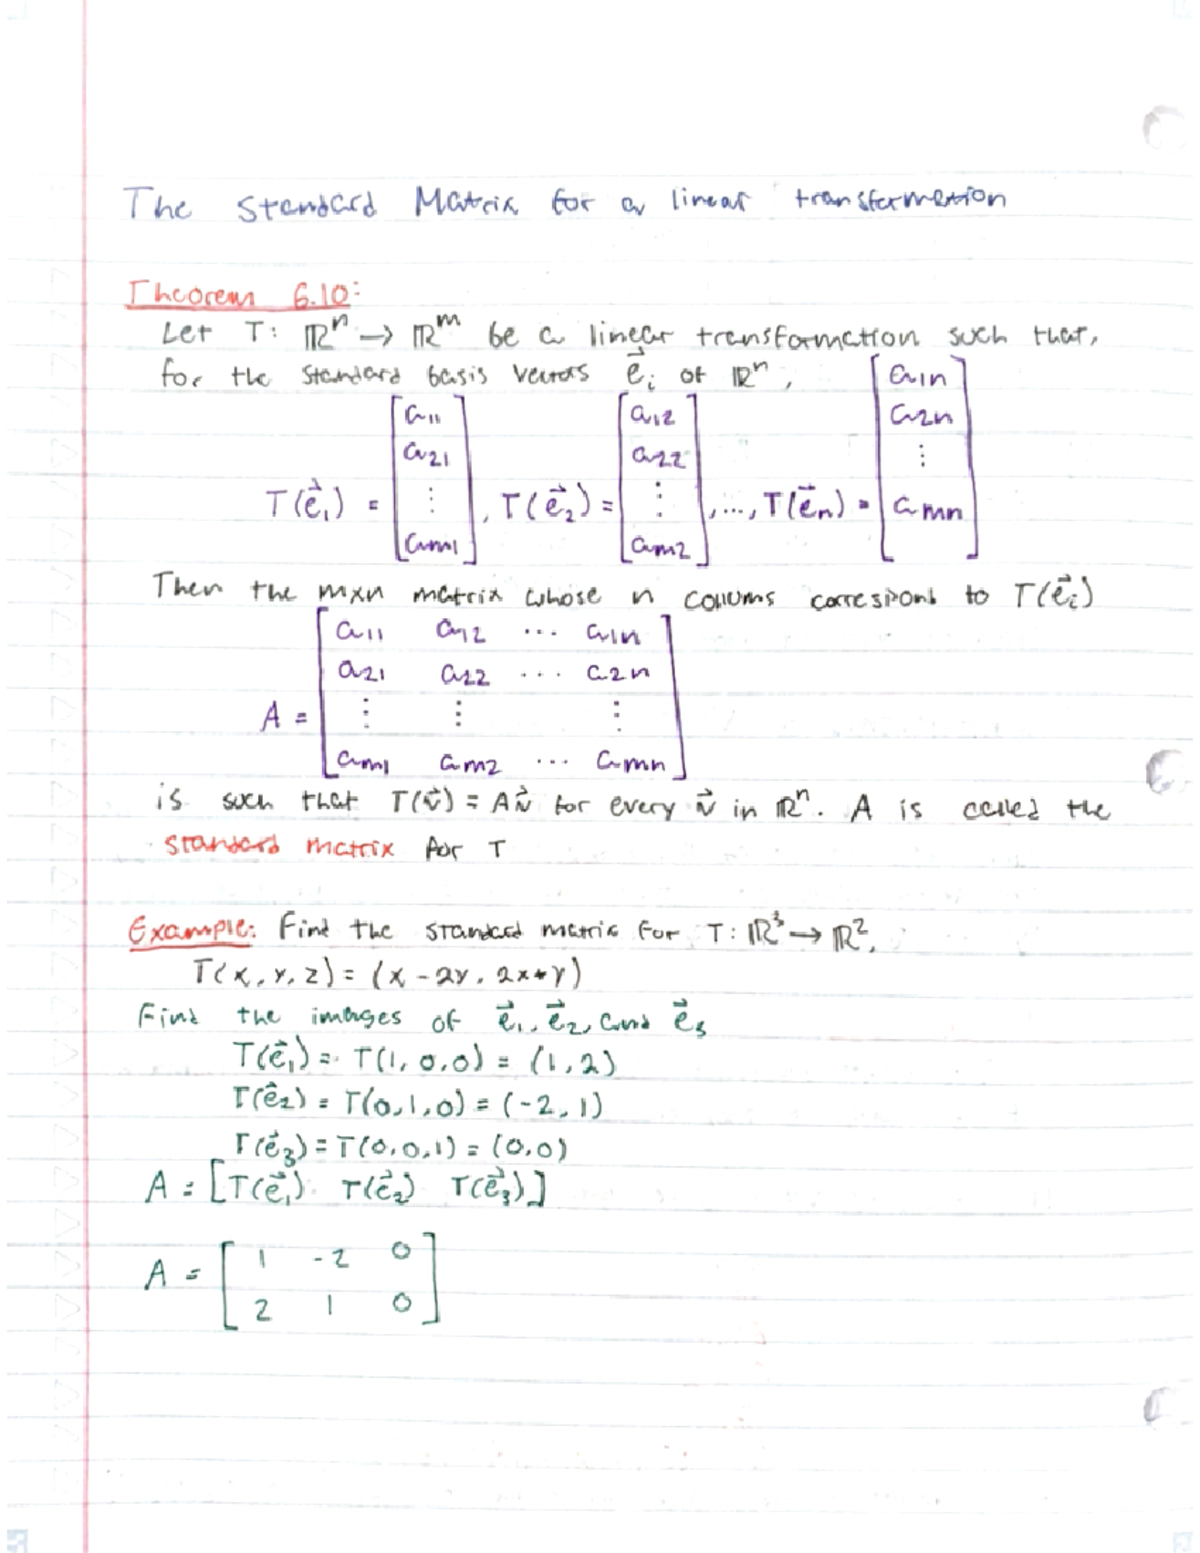 The Standard Matrix for a linear transformation
Theorem 6.10:
Let T: ℝⁿ → ℝᵐ be a linear transformation such that,
for the standard basis vectors e⃗ᵢ of ℝⁿ,
T(e⃗₁) = [a₁₁ a₂₁ ⋮ aₘ₁], T(e⃗₂) = [a₁₂ a₂₂ ⋮ aₘ₂], ..., T(e⃗ₙ) = [a₁ₙ a₂ₙ ⋮ aₘₙ]
Then the mxn matrix whose n collums correspond to T(e⃗ᵢ)
A = [a₁₁ a₁₂ ... a₁ₙ
a₂₁ a₂₂ ... a₂ₙ
⋮ ⋮ ⋮
aₘ₁ aₘ₂ ... aₘₙ]
is such that T(v⃗) = Av⃗ for every v⃗ in ℝⁿ. A is called the
standard matrix for T
Example: Find the standard matrix for T: ℝ³ → ℝ²,
T(x, y, z) = (x - 2y, 2x+y)
Find the images of e⃗₁, e⃗₂, and e⃗₃
T(e⃗₁) = T(1, 0, 0) = (1, 2)
T(e⃗₂) = T(0, 1, 0) = (-2, 1)
T(e⃗₃) = T(0, 0, 1) = (0, 0)
A = [T(e⃗₁) T(e⃗₂) T(e⃗₃)]
A = [1 -2 0
2 1 0]